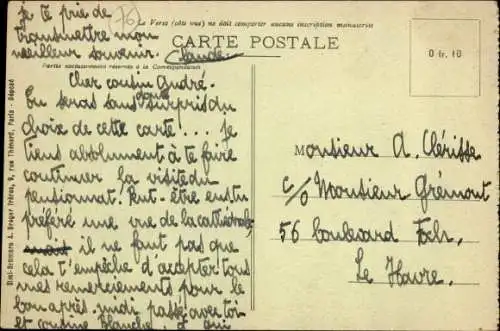 Je te prie de
transmettre mon
meilleur souvenir. Claude
(76)
Le Verso (côté vue) ne doit comporter aucune inscription manuscrite
CARTE POSTALE
Partie exclusivement réservée à la Correspondance
0 fr. 10
Cher cousin André.
Tu seras sans doute surpris du
choix de cette carte!... Je
tiens absolument à te faire
continuer la visite du
pensionnat. Peut-être eus tu
préféré une vue de la cathédrale
mais il ne faut pas que
cela t'empêche d'accepter tous
mes remerciements pour le
bon après-midi passé avec toi
et cousine Blanche, à qui
Monsieur A. Clérisse
c/o Monsieur Grémont
56 boulevard Foch.
Le Havre.
Simi-Bromure A. Breger frères, 9, rue Thénard, Paris - Déposé